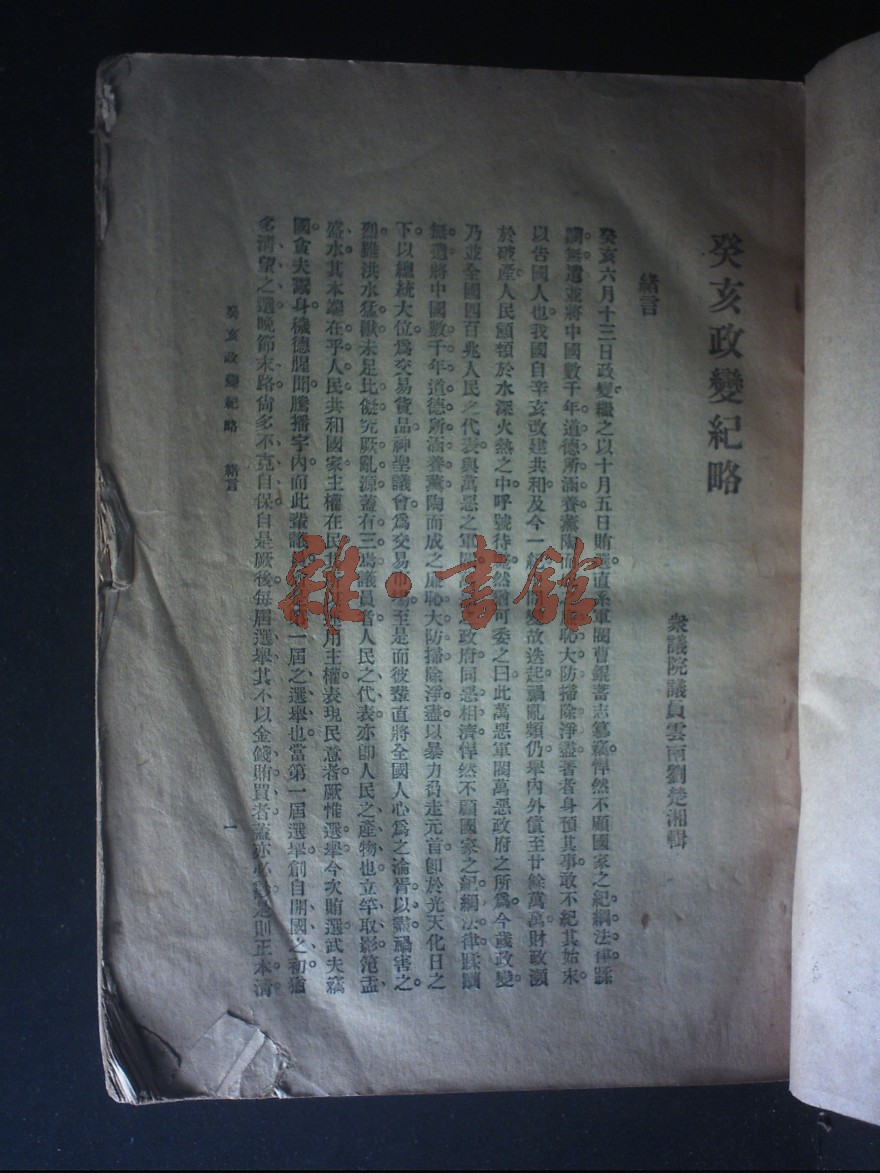 癸亥政變紀略
衆議院議員雲南劉楚湘輯
緒言
癸亥六月十三日政變繼之以十月五日賄選直系軍閥曹錕蓄志篡竊悍然不顧國家之紀綱法律蹂
躪無遺並將中國數千年道德所涵養薰陶而廉恥大防掃除淨盡著者身預其事敢不紀其始末
以告國人也我國自辛亥改建共和及今一紀變故迭起禍亂頻仍舉內外債至廿餘萬萬財政瀕
於破產人民顛頓於水深火熱之中呼號待然可委之曰此萬惡軍閥萬惡政府之所爲今歲政變
乃並全國四百兆人民之代表與萬惡之軍閥政府同惡相濟悍然不顧國家之紀綱法律蹂躪
無遺將中國數千年道德所涵養薰陶而成之廉恥大防掃除淨盡以暴力劫走元首卽於光天化日之
下以總統大位爲交易貨品神聖議會爲交易市場至是而彼輩直將全國人心爲之淪胥以盡禍害之
烈雖洪水猛獸未足比儗究厥亂源蓋有三焉議員者人民之代表亦卽人民之產物也立竿取影范盂
盛水其本端在乎人民共和國家主權在民其用主權表現民意者厥惟選舉今次賄選武夫竊
國貪夫躪身穢德腥聞騰播宇內而此輩一屆之選舉也當第一屆選舉創自開國之初猶
多淸望之選晚節末路尙多不克自保自是厥後每屆選舉其不以金錢賄買者蓋亦必則正本淸
癸亥政變紀略　緒言
一
雜·書館